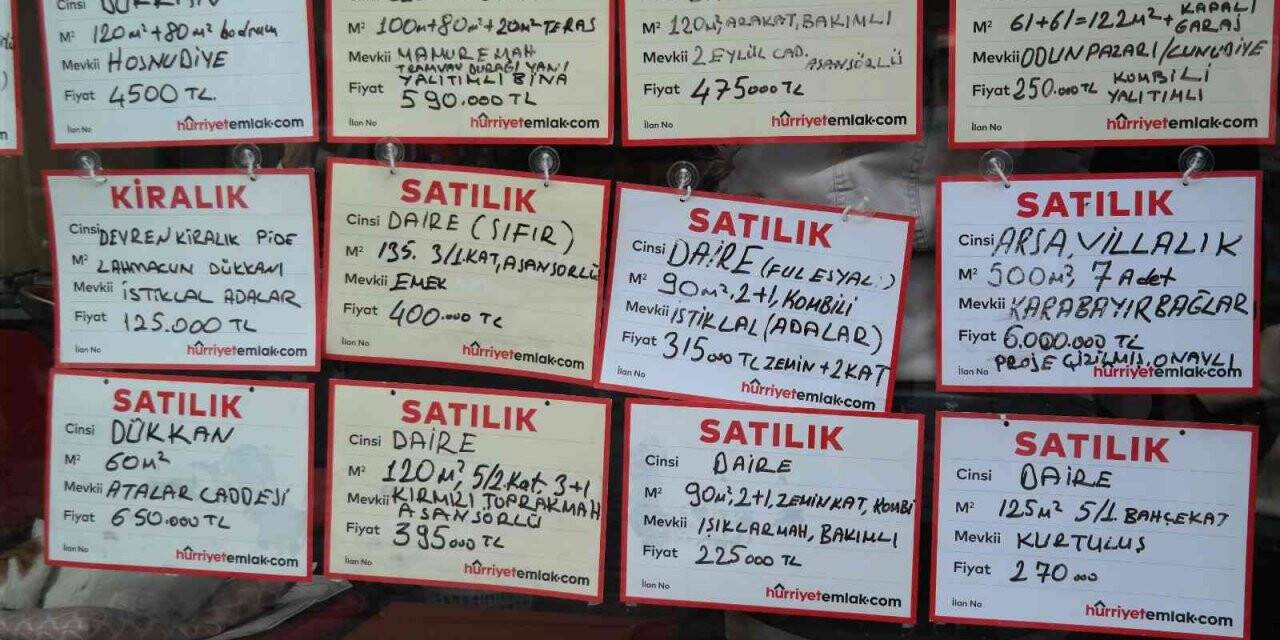 M² 120m²+80m² bodrum
Mevkii HOŞNUDİYE
Fiyat 4500 TL.
İlan No
hürriyetemlak.com
M² 100m+80m²+20m² TERAS
Mevkii MAMURE MAH
TRAMVAY DURAĞI YANI
YALITIMLI BİNA
Fiyat 590.000 TL
İlan No
hürriyetemlak.com
M² 120m², ARAKAT, BAKIMLI
Mevkii 2 EYLÜL CAD. ASANSÖRLÜ
Fiyat 475000 TL
İlan No
hürriyetemlak.com
M² 61+61=122m²+ KAPALI
GARAJ
Mevkii ODUNPAZARI/CUNUDİYE
Fiyat 250.000 TL KOMBİLİ
YALITIMLI
İlan No
hürriyetemlak.com
KİRALIK
Cinsi DEVREN KİRALIK PİDE
M² LAHMACUN DÜKKANI
Mevkii İSTİKLAL ADALAR
Fiyat 125.000 TL
İlan No
hürriyetemlak.com
SATILIK
Cinsi DAİRE (SIFIR)
M² 135. 3/1.KAT, ASANSORLÜ
Mevkii EMEK
Fiyat 400.000 TL
İlan No
hürriyetemlak.com
SATILIK
Cinsi DAİRE (FUL EŞYALI)
M² 90m², 2+1, KOMBİLİ
Mevkii İSTİKLAL (ADALAR)
Fiyat 315000 TL ZEMİN+2KAT
İlan No
hürriyetemlak.com
SATILIK
Cinsi ARSA, VİLLALIK
M² 500m², 7 Adet
Mevkii KARABAYIR BAĞLARI
Fiyat 6.000.000 TL
PROJE ÇİZİLMİŞ, ONAYLI
İlan No
hürriyetemlak.com
SATILIK
Cinsi DÜKKAN
M² 60m²
Mevkii ATALAR CADDESİ
Fiyat 650.000 TL
İlan No
hürriyetemlak.com
SATILIK
Cinsi DAİRE
M² 120m², 5/2.Kat, 3+1
Mevkii KIRMIZI TOPRAKMAH
ASANSÖRLÜ
Fiyat 395000 TL
İlan No
hürriyetemlak.com
SATILIK
Cinsi DAİRE
M² 90m², 2+1, ZEMİNKAT, KOMBİ
Mevkii IŞIKLARMAH, BAKIMLI
Fiyat 225000 TL
İlan No
hürriyetemlak.com
SATILIK
Cinsi DAİRE
M² 125m² 5/1. BAHÇEKAT
Mevkii KURTULUŞ
Fiyat 270000
İlan No
hürriyetemlak.com